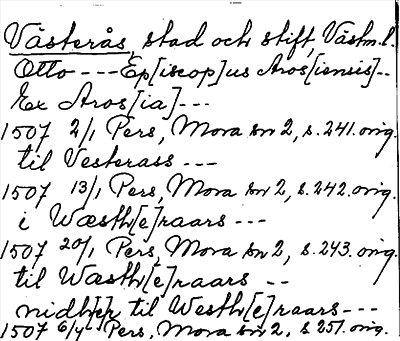 Västerås, stad och stift, Västm.l.
Otto --- Ep[iscop]us Aros[iensis]--
Ex Aros[ia]---
1507 2/1 Pers, Mora sn 2, s.241. orig.
til Vesterass ---
1507 13/1 Pers, Mora sn 2, s.242. orig.
i Wæsth[e]raars ---
1507 20/1 Pers, Mora sn 2, s.243. orig.
til Wæsth[e]raars --
til Westh[e]raars ---
1507 6/4 Pers, Mora sn 2, s 251. orig.